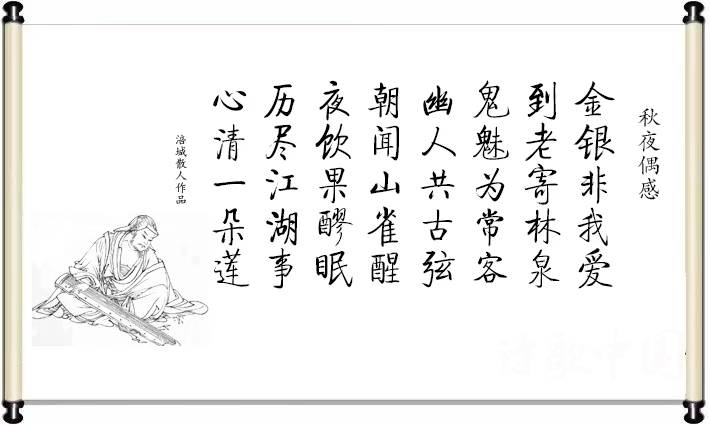 秋夜偶感
金银非我爱
到老寄林泉
鬼魅为常客
幽人共古弦
朝闻山雀醒
夜饮果醪眠
历尽江湖事
心清一朵莲
涪城散人作品
诗歌中国